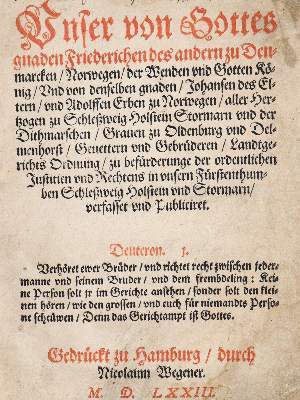 Vnser von Gottes
gnaden Friederichen des andern zu Den-
marcken / Norwegen / der Wenden vnd Gotten Kö-
nig / Vnd von denselben gnaden / Johansen des El-
tern / vnd Adolffen Erben zu Norwegen / aller Her-
tzogen zu Schleßweig Holstein Stormarn vnd der
Dithmarschen / Grauen zu Oldenburg vnd Del-
menhorst / Geuettern vnd Gebrüderen / Landtge-
richts Ordnung / zu befürderunge der ordentlichen
Justitien vnd Rechtens in vnsern Fürstenthum-
ben Schleßweig Holstein vnd Stormarn /
verfasset vnd Publiciret.
Deuteron. 1.
Verhöret ewer Brüder / vnd richtet recht zwischen jeder-
manne vnd seinem Bruder / vnd dem frembdeling: Keine
Person solt jr im Gerichte ansehen / sonder solt den klei-
nen hören / wie den grossen / vnd euch für niemandts Perso-
ne schewen / Denn das Gerichtampt ist Gottes.
Gedrückt zu Hamburg / durch
Nicolaum Wegener.
M. D. LXXIII.